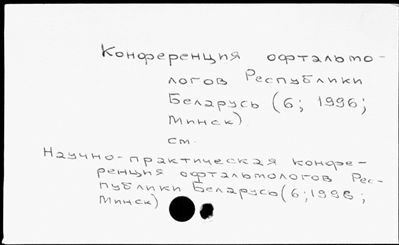 Конференция офтальмо-
логов Республики
Беларусь (6; 1996;
Минск)
см.
Научно-практическая конфе-
ренция офтальмологов Рес-
публики Беларусь (6; 1996;
Минск)